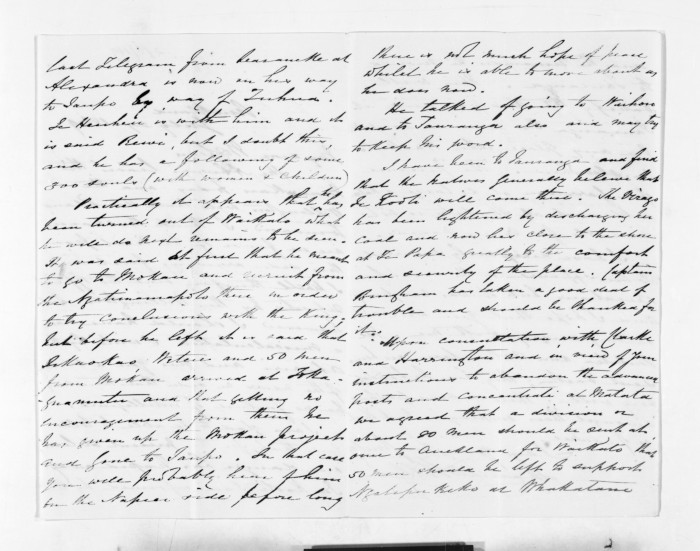 last Telegram from Searancke at
Alexandra is now on his way
to Taupo by way of Tuhua.
Te Heuheu is with him and it
is said Rewi, but I doubt this,
and he has a following of some
300 souls (with women & children)
Practically it appears that he has
been turned out of Waikato what
he will do next remains to be seen.
It was said at first that he meant
to go to Mokau and recruit from
the Ngatimaniapoto there in order
to try conclusions with the King,
but before he left it is said that
Wetere and 50 men
from Mokau arrived at Toka-
-ngamutu and that getting no
encouragement from them he
has given up the Mokau project
and gone to Taupo. In that case
you will probably hear of him
on the Napier side before long
there is not much hope of peace
whilst he is able to move about as
he does now.
He talked of going to Waihou
and to Tauranga also and may try
to keep his word.
I have been to Tauranga and find
that the Natives generally believe that
Te Kooti will come there. The Virago
has been lightened by discharging her
coal and now lies close to the shore
at Te Papa greatly to the comfort
and security of the place. Captain
Bingham has taken a good deal of
trouble and should be thanked for
it.
Upon consultation with Clarke
and Harrington and in view of your
instructions to abandon the advanced
posts and concentrate at Matata
we agreed that a division or
about 80 men should be sent at
once to Auckland for Waikato that
50 men should be left to support
Ngatipukeko at Whakatane